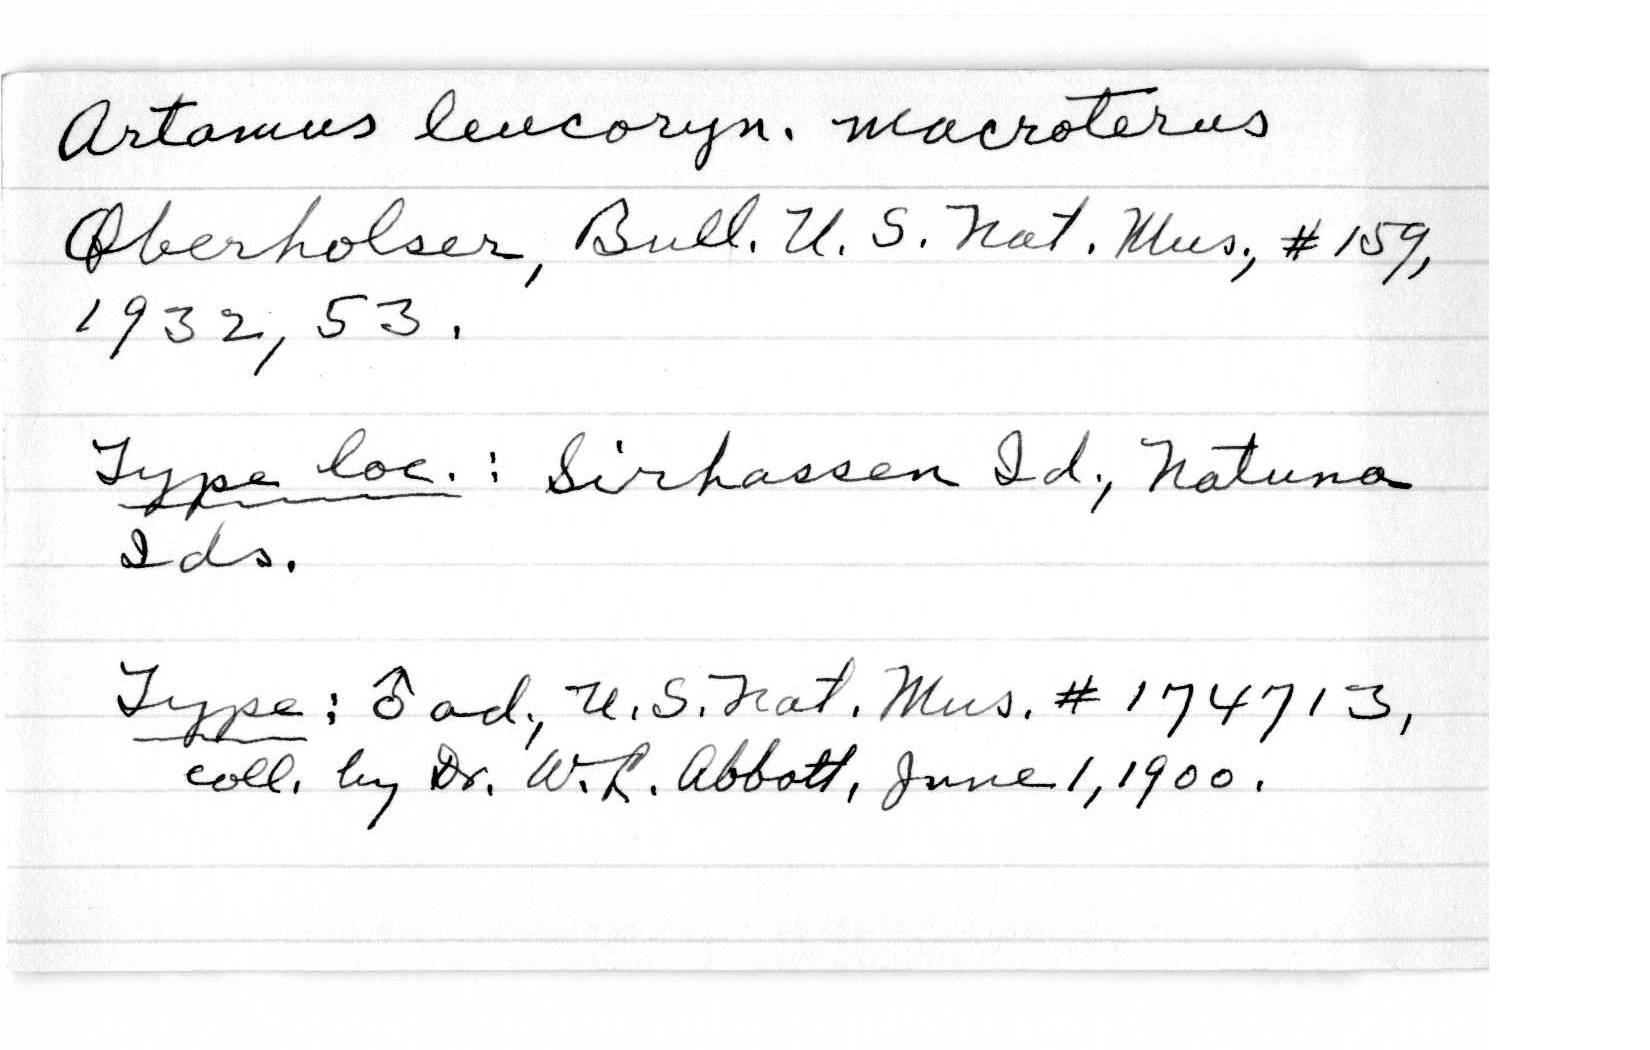 Artamus leucoryn. macroterus
Oberholser, Bull. U. S. Nat. Mus., # 159,
1932, 53.
Type loc. : Sirhassen Id., Natuna
Ids.
Type : ♂ ad., U. S. Nat. Mus. # 174713,
coll. by Dr. W. L. Abbott, June 1, 1900.